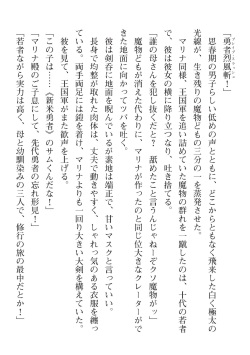 「勇者烈風斬！」
思春期の男子らしい低めの声とともに、どこからともなく飛来した白く極太の
光線が、生き残りの魔物どもの三分の一を蒸発させた。
マリーナ同様、王国軍を追い詰めていた魔物の群れを一蹴したのは、十代の若者
で、彼は彼女の横に降り立つなり、吐き捨てる。
「誰の母さんを犯し抜くだと？　舐めたこと言うんじゃねーぞクソ魔物がッ」
魔物どもが消え去った代わりに、マリーナが作ったのと同じ位大きなクレーターがで
きた地面に向かってツバを吐く。
彼は剣呑に地面を睨んでいるが素地は端正で、甘いマスクと言っていい。
長身で均整が取れた肉体は、丈夫で動きやすく、しゃれっ気のある衣服を纏っ
ている。両手両足には鎧を着け、マリーナよりも一回り大きい大剣を構えていた。
彼を見て、王国軍がまた歓声を上げる。
「この子は……《新米勇者》のサムくんだな！」
「マリーナ殿のご子息にして、先代勇者の忘れ形見！」
「若者ながら実力は高く、母と幼馴染みの三人で、修行の旅の最中だとか！」